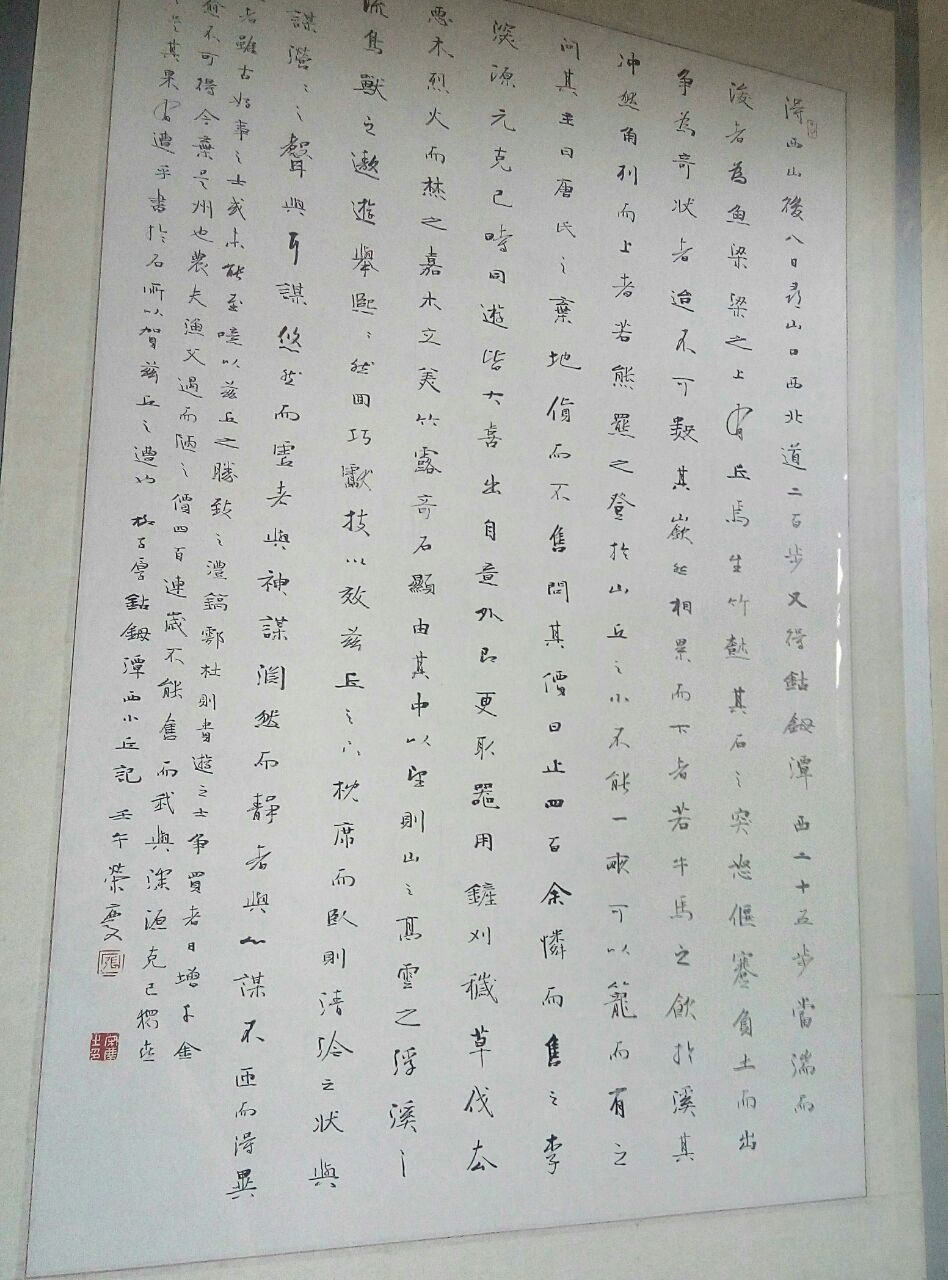 得西山後八日尋山口西北道二百步又得鈷鉧潭西二十五步當湍而
浚者為魚梁梁之上有丘焉生竹樹其石之突怒偃蹇負土而出
争為奇狀者迨不可數其嶔然相累而下者若牛馬之飲於溪其
冲然角列而上者若熊羆之登於山丘之小不能一畝可以籠而有之
问其主曰唐氏之棄地貨而不售問其價曰止四百余憐而售之李
深源元克己時同遊皆大喜出自意外即更取器用鏟刈穢草伐去
惡木烈火而焚之嘉木立美竹露奇石顯由其中以望則山之高雲之浮溪之
流鳥獸之遨遊舉熙熙然回巧獻技以效茲丘之下枕席而臥則清泠之状與
謀瀯瀯之聲與耳謀悠然而虚者與神謀淵然而靜者與心謀不匝而得異
者雖古好事之士或未能至噫以茲丘之勝致之灃鎬鄠杜則貴遊之士争買者日增千金
愈不可得今棄是州也農夫漁父過而陋之價四百連歲不能售而我與深源克己獨喜
是其果有遭乎書於石所以賀茲丘之遭也 柳子厚鈷鉧潭西小丘記 壬午榮慶